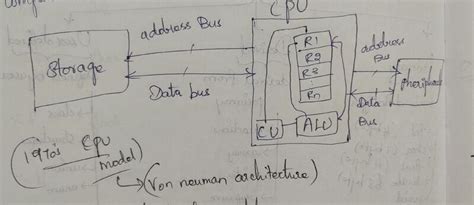 CPU
address Bus
Storage
Data bus
R1
R2
R3
Rn
CU
ALU
address
Bus
Data
Bus
1970's CPU
model)
(Von neuman architecture)